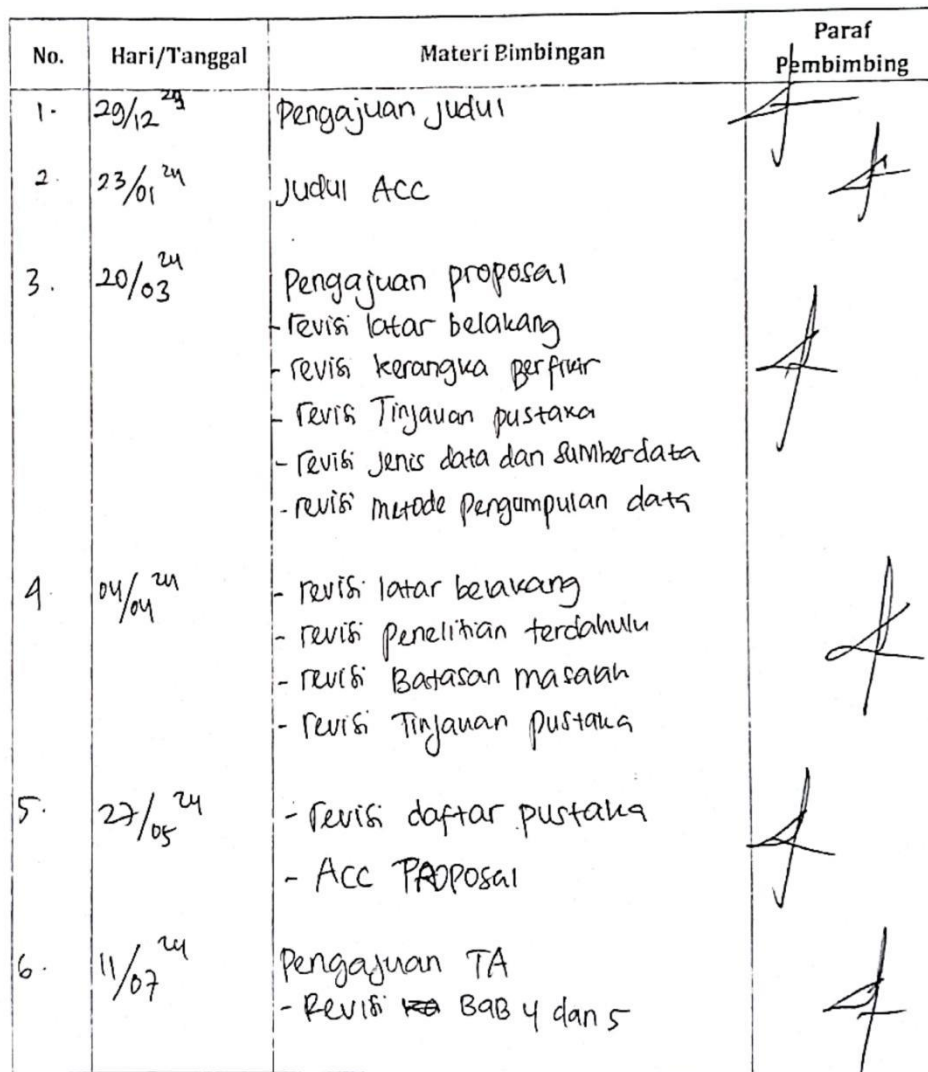 No. Hari/Tanggal Materi Bimbingan Paraf Pembimbing
1. 29/12 Pengajuan Judul
2. 23/01 24 Judul ACC
3. 20/03 24 Pengajuan proposal
- revisi latar belakang
- revisi kerangka berfikir
- revisi Tinjauan pustaka
- revisi Jenis data dan sumberdata
- revisi metode pengumpulan data
4. 04/04 24 - revisi latar belakang
- revisi penelitian terdahulu
- revisi Batasan masalah
- revisi Tinjauan pustaka
5. 27/05 24 - revisi daftar pustaka
- ACC PROPOSAL
6. 11/07 24 Pengajuan TA
- Revisi BAB 4 dan 5